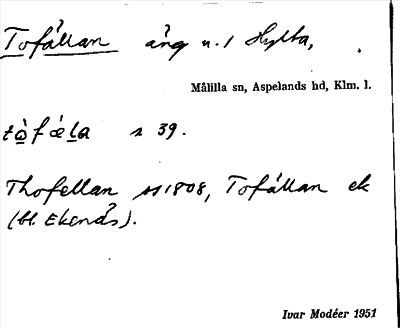 Tofållan äng u. / Hylta,
Målilla sn, Aspelands hd, Klm. l.
s 39.
Thofellan 1808, Tofållan ek
(bl. Ekenäs).
Ivar Modéer 1951